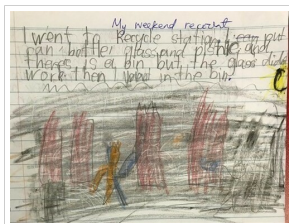 My weekend recount
I went to Recycle station I can put
can bottle glass and plastic and
there is a bin but the glass didn
work then I in the bin.